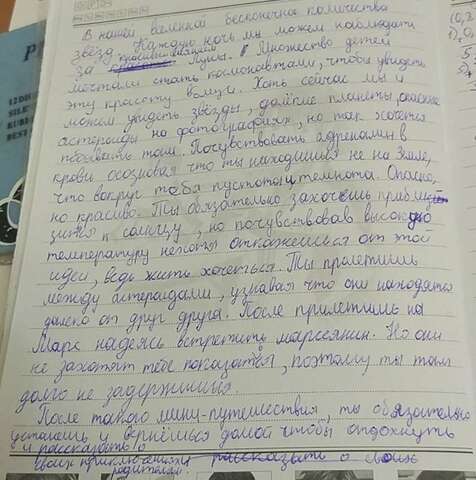 В нашей вселенной бесконечное количество
звёзд. Каждую ночь мы можем наблюдать
за красивым сиянием Луны. Множество детей
мечтали стать космонавтами, чтобы увидеть
эту красоту вживую. Хоть сейчас мы и
можем увидеть звёзды, далёкие планеты, опасные
астероиды на фотографиях, но так хочется
побывать там. Почувствовать адреналин в
крови осознавая что ты находишься не на Земле,
что вокруг тебя пустота и темнота. Опасно,
но красиво. Ты обязательно захочешь прибли-
зится к солнцу, но почувствовав высокую
температуру откажешься от этой
идеи, ведь жить хочеться. Ты пролетишь
между астероидами, узнавая что они находятся
далеко от друг друга. После прилетишь на
Марс надеясь встретить марсиянин. Но они
не захотят тебе показатся, поэтому ты там
долго не задержишься.
После такого мини-путешествия, ты обязательно
устанешь и вернёшься домой чтобы отдохнуть
и рассказать о
своих приключениях рассказать о своих
родителям.